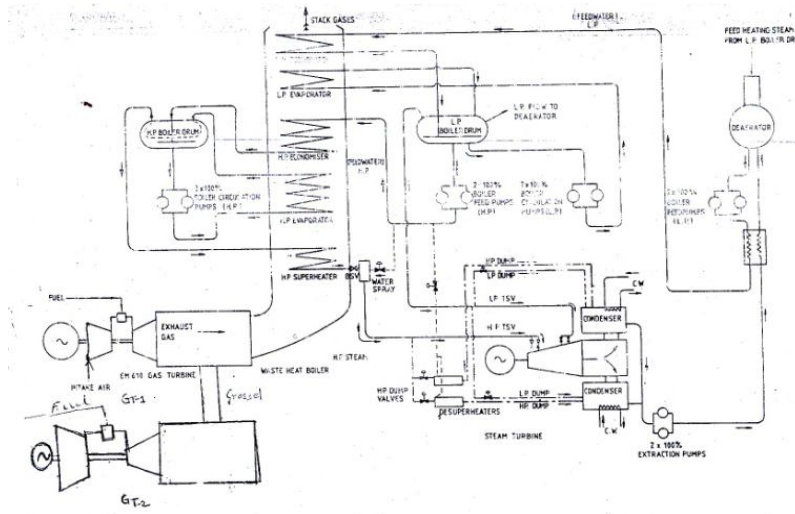 STACK GASES
(FEEDWATER)
L.P
FEED HEATING STEAM
FROM L.P. BOILER DRUM
L.P. EVAPORATOR
H.P. BOILER DRUM
L.P.
BOILER DRUM
L.P. FLOW TO
DEAERATOR
DEAERATOR
H.P. ECONOMISER
(FEEDWATER)
H.P
2 x 100%
BOILER CIRCULATION
PUMPS (H.P.)
2 x 100%
BOILER
FEED PUMPS
(H.P.)
BOILER
CIRCULATION
PUMPS (L.P.)
2 x 100%
BOILER
FEED PUMPS
H.P. EVAPORATOR
H.P. SUPERHEATER
BSV
WATER
SPRAY
H.P. DUMP
L.P. DUMP
C.W.
FUEL
EXHAUST
GAS
LP TSV
CONDENSER
H.P. TSV
H.P. STEAM
INTAKE AIR
EM 610 GAS TURBINE
WASTE HEAT BOILER
GT-1
HP DUMP
VALVES
L.P. DUMP
H.P. DUMP
CONDENSER
DESUPERHEATERS
C.W.
STEAM TURBINE
2 x 100%
EXTRACTION PUMPS
GT-2